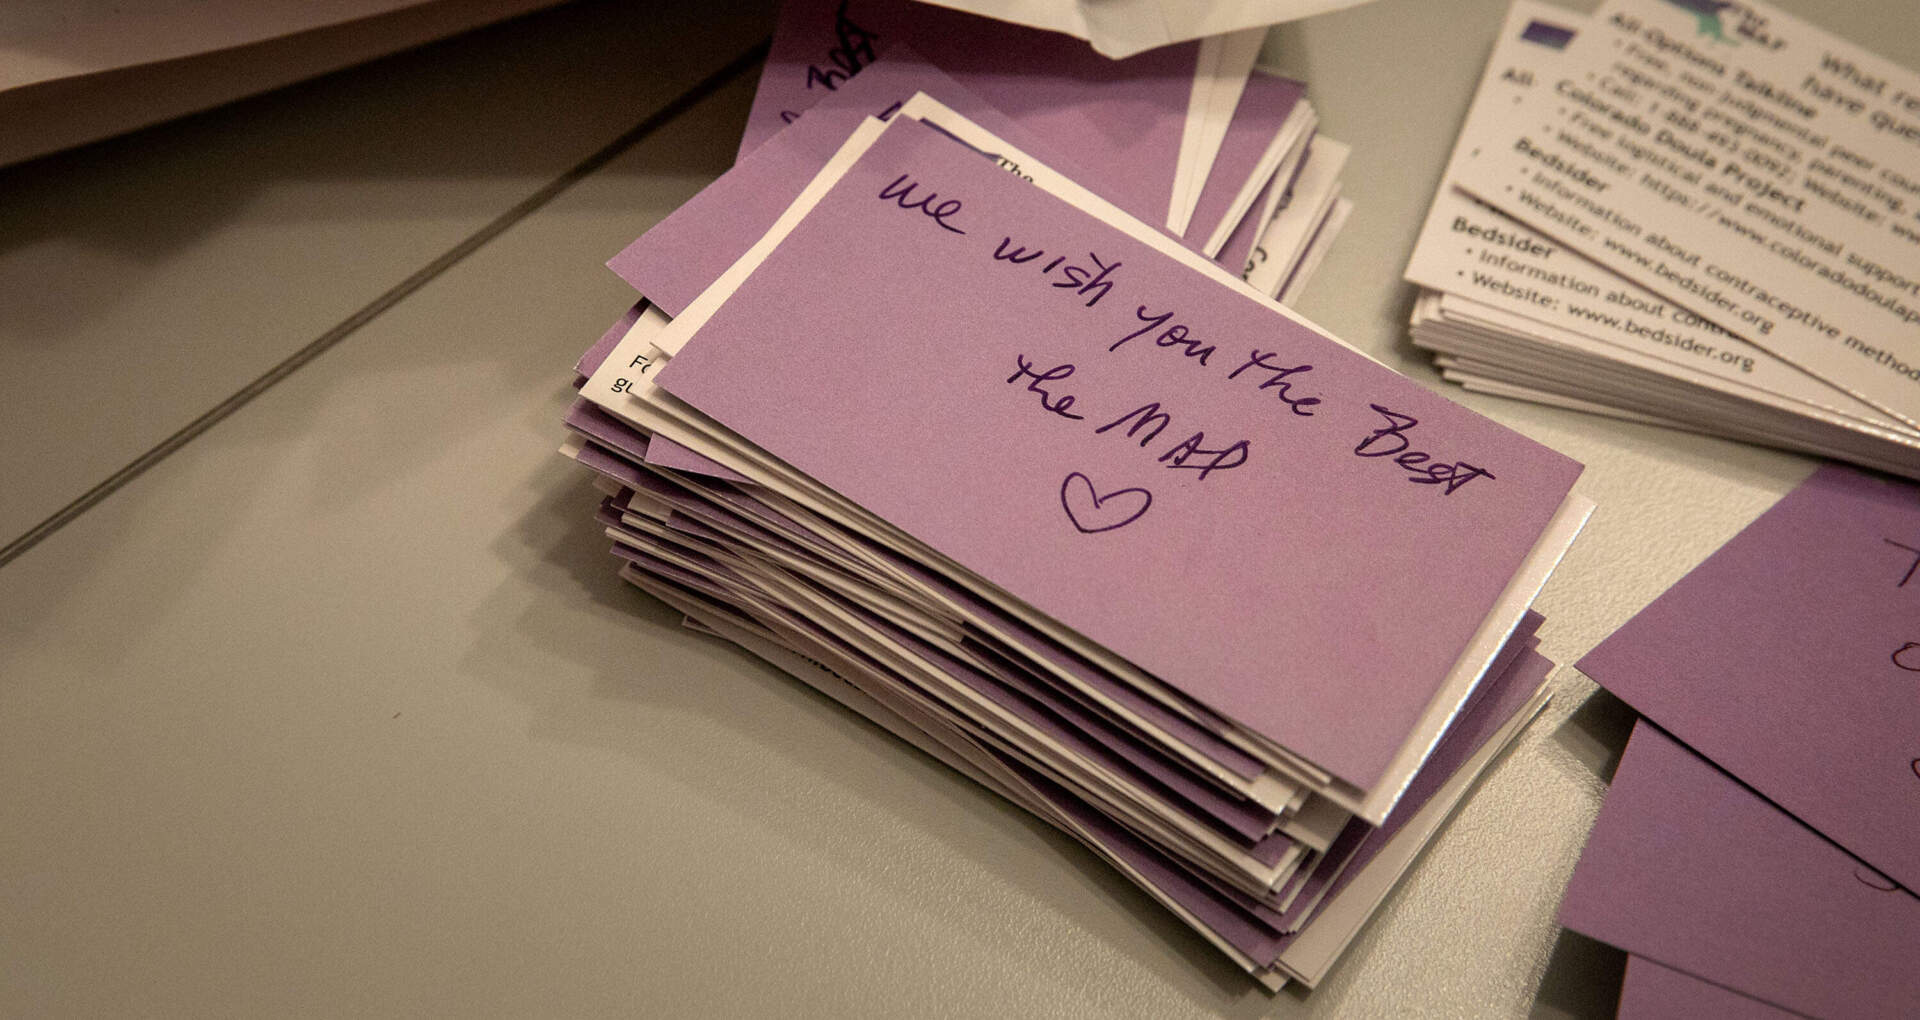 Best
The
We wish you the Best
the MAP
♡
Fo
gu
The
MAP
What re
have que
All-Options Talkline
• Free, non-judgmental peer coun
regarding pregnancy, parenting, a
• Call: 1-888-493-0092, Website: ww
Colorado Doula Project
• Free logistical and emotional support
• Website: https://www.coloradodoulap
Bedsider
• Information about contraceptive method
• Website: www.bedsider.org
All
Bedsider
• Information about contra
• Website: www.bedsider.org